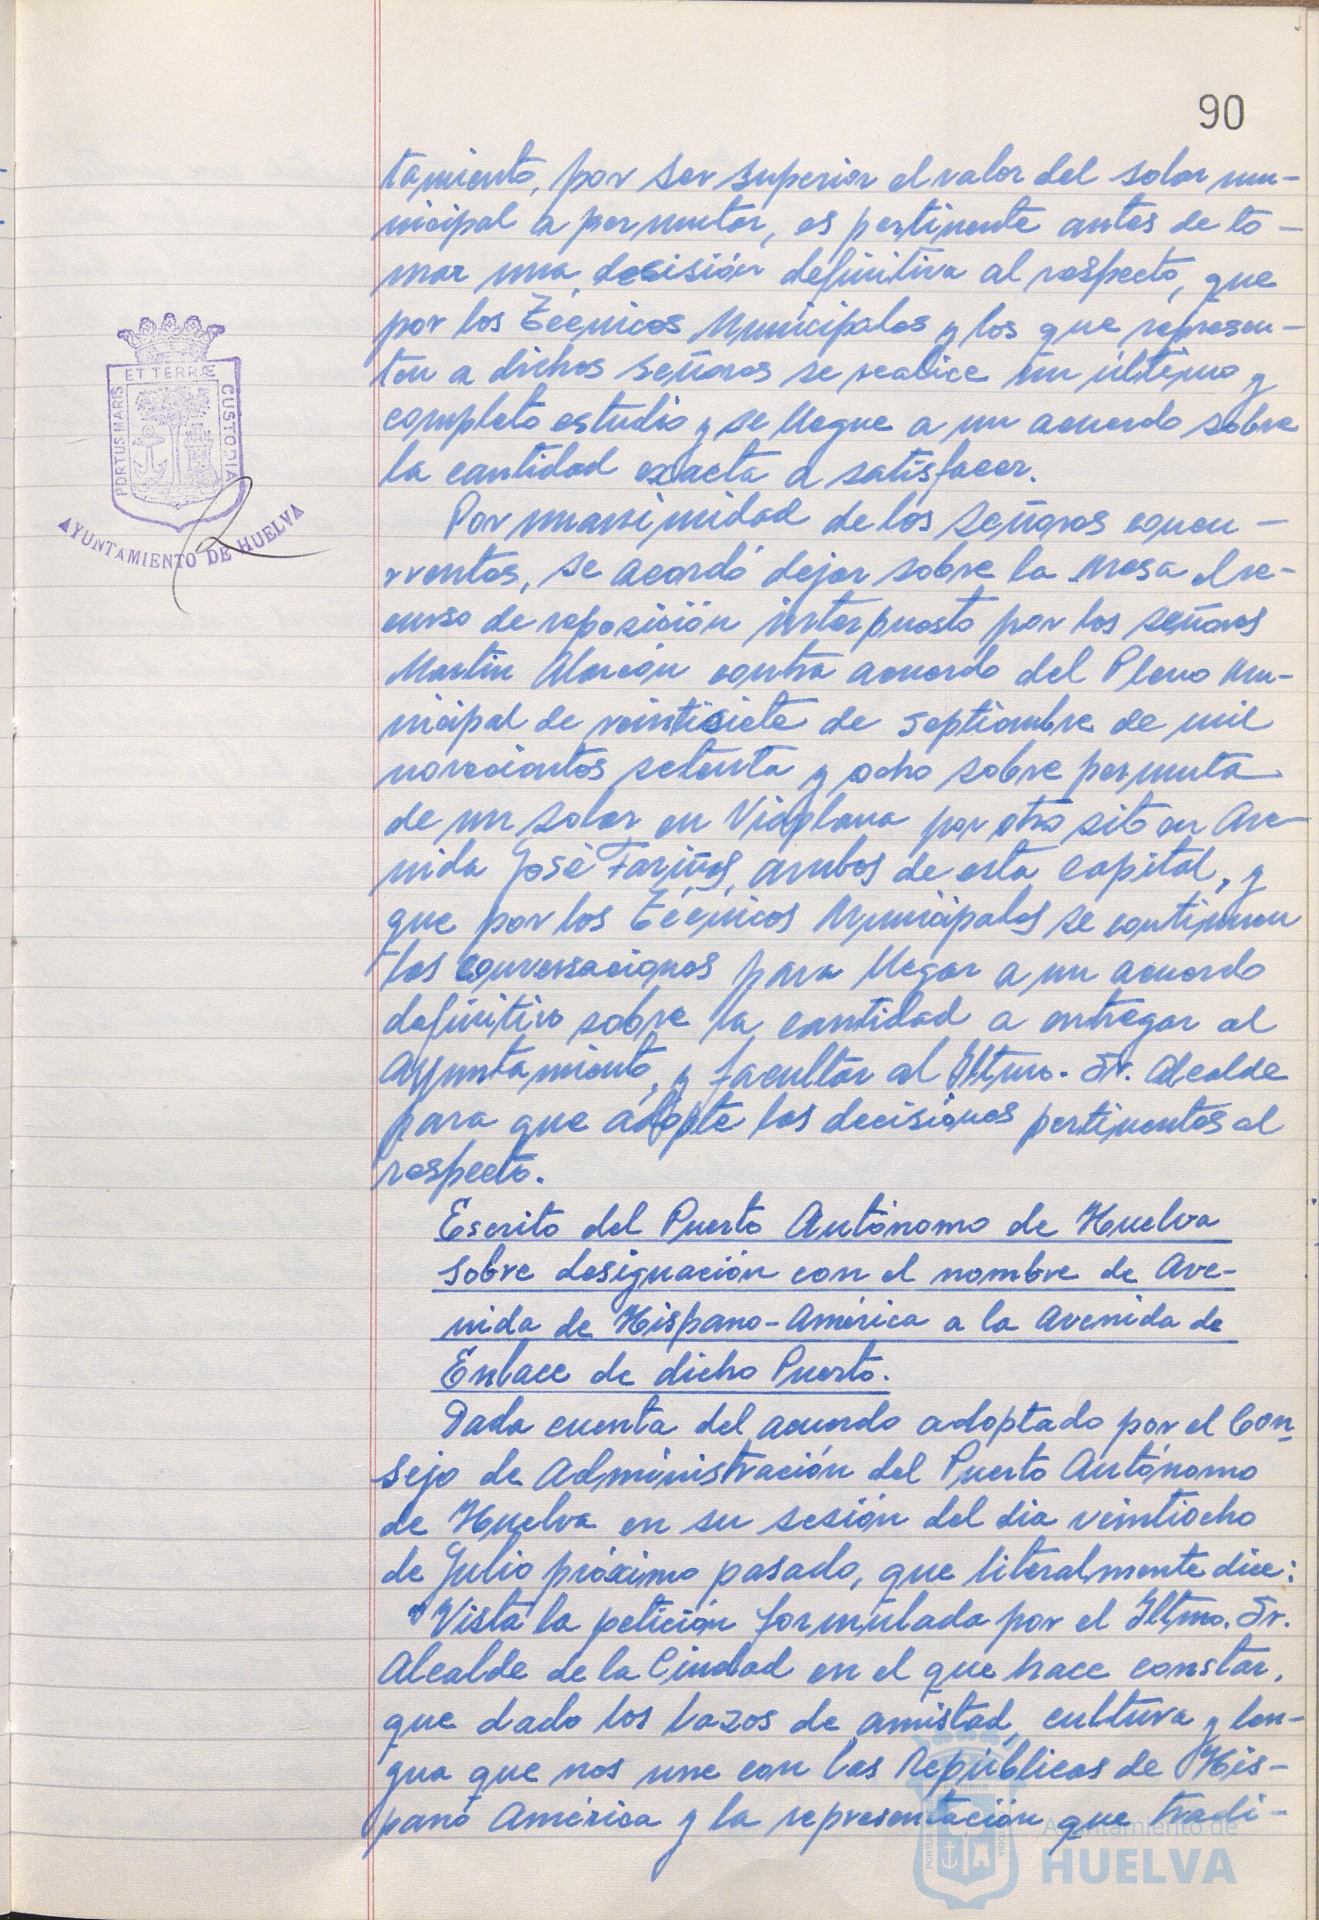 90
tamiento, por ser superior el valor del solar mu-
nicipal a permutar, es pertinente antes de to-
mar una decisión definitiva al respecto, que
por los Técnicos Municipales y los que represen-
ten a dichos señores se realice un último y
completo estudio y se llegue a un acuerdo sobre
la cantidad exacta a satisfacer.
Por unanimidad de los señores concu-
rrentes, se acordó dejar sobre la Mesa el re-
curso de reposición interpuesto por los señores
Martin Alarcón contra acuerdo del Pleno Mu-
nicipal de veintisiete de septiembre de mil
novecientos setenta y ocho sobre permuta
de un solar en Viaplana por otro sito en Ave-
nida José Fariñas, ambos de esta Capital, y
que por los Técnicos Municipales se continuen
las conversaciones para llegar a un acuerdo
definitivo sobre la cantidad a entregar al
Ayuntamiento, y facultar al Iltmo. Sr. Alcalde
para que adopte las decisiones pertinentes al
respecto.
Escrito del Puerto Autónomo de Huelva
sobre designación con el nombre de Ave-
nida de Hispano-América a la Avenida de
Enlace de dicho Puerto.
Dada cuenta del acuerdo adoptado por el Con-
sejo de Administración del Puerto Autónomo
de Huelva en su sesión del dia veintiocho
de Julio próximo pasado, que literalmente dice:
"Vista la petición formulada por el Iltmo. Sr.
Alcalde de la Ciudad en el que hace constar,
que dado los lazos de amistad, cultura y len-
gua que nos une con las Repúblicas de His-
pano América y la representación que tradi-
PORTUS MARIS ET TERRÆ CUSTODIA
AYUNTAMIENTO DE HUELVA
Ayuntamiento de
HUELVA